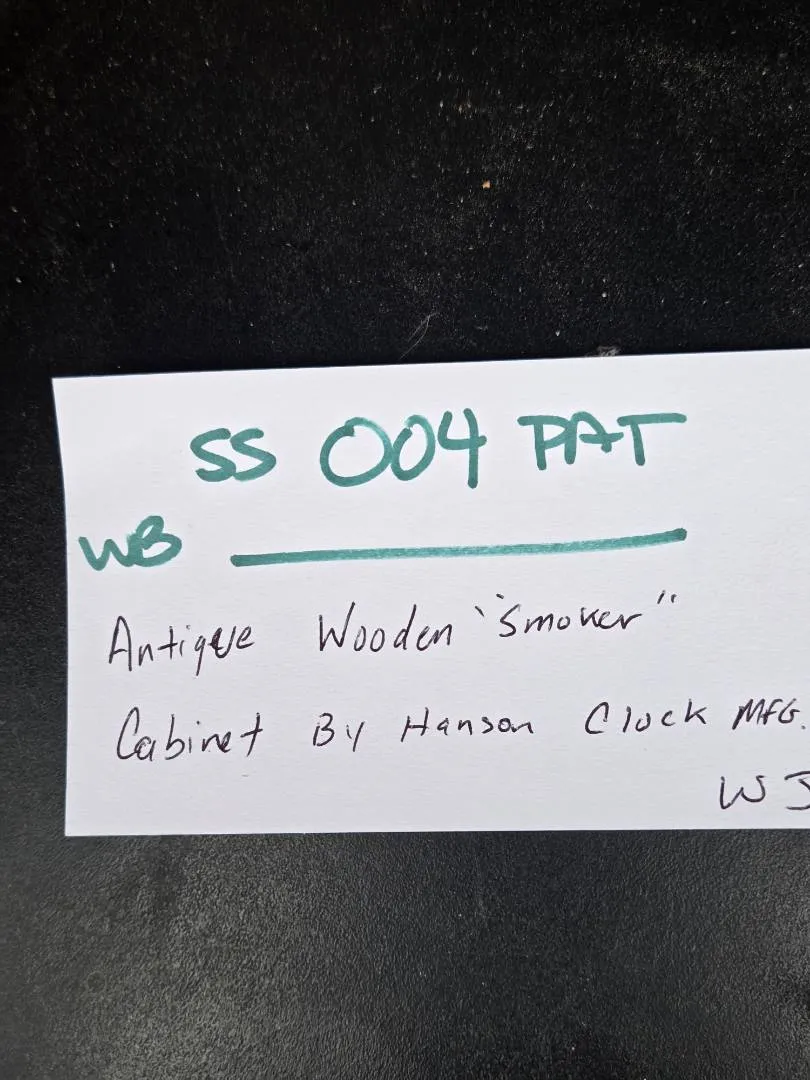 SS 004 PAT
WB
Antique Wooden "Smoker"
Cabinet By Hanson Clock MFG.
WJ